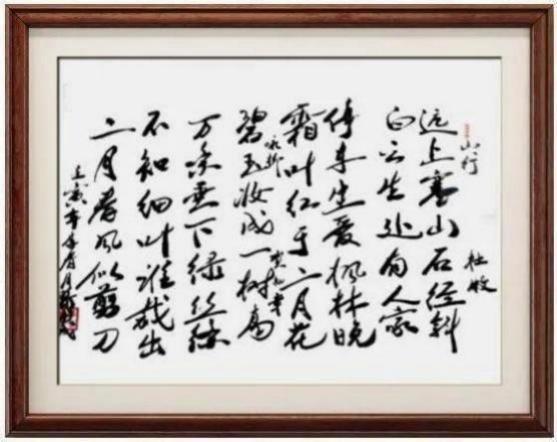 山行 杜牧
远上寒山石径斜
白云生处有人家
停车坐爱枫林晚
霜叶红于二月花
咏柳 贺知章
碧玉妆成一树高
万条垂下绿丝绦
不知细叶谁裁出
二月春风似剪刀
壬寅年